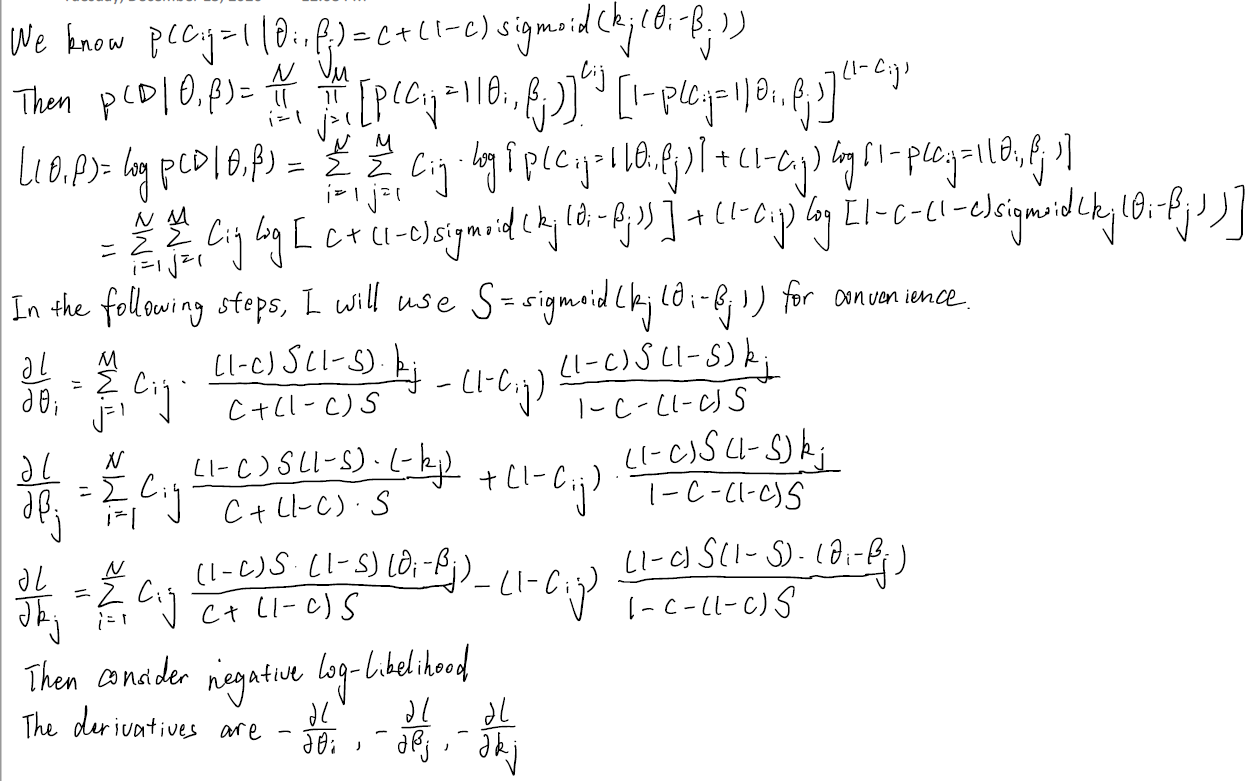 We know p(Cij=1|θi,βj)=c+(1-c)sigmoid(kj(θi-βj))
Then p(D|θ,β)= ∏_{i=1}^{N} ∏_{j=1}^{M} [p(Cij=1|θi,βj)]^{Cij} [1-p(Cij=1|θi,βj)]^{(1-Cij)}
L(θ,β)= log p(D|θ,β) = Σ_{i=1}^{N} Σ_{j=1}^{M} Cij · log[p(Cij=1|θi,βj)] + (1-Cij) log[1-p(Cij=1|θi,βj)]
= Σ_{i=1}^{N} Σ_{j=1}^{M} Cij log[c+(1-c)sigmoid(kj(θi-βj))] + (1-Cij) log[1-c-(1-c)sigmoid(kj(θi-βj))]
In the following steps, I will use S=sigmoid(kj(θi-βj)) for convenience.
∂L/∂θi = Σ_{j=1}^{M} Cij · (1-c)S(1-S)·kj / c+(1-c)S - (1-Cij) (1-c)S(1-S)kj / 1-c-(1-c)S
∂L/∂βj = Σ_{i=1}^{N} Cij (1-c)S(1-S)·(-kj) / c+(1-c)·S + (1-Cij) · (1-c)S(1-S)kj / 1-c-(1-c)S
∂L/∂kj = Σ_{i=1}^{N} Cij (1-c)S·(1-S)(θi-βj) / c+(1-c)S - (1-Cij) (1-c)S(1-S)·(θi-βj) / 1-c-(1-c)S
Then consider negative log-likelihood
The derivatives are -∂L/∂θi , -∂L/∂βj , -∂L/∂kj